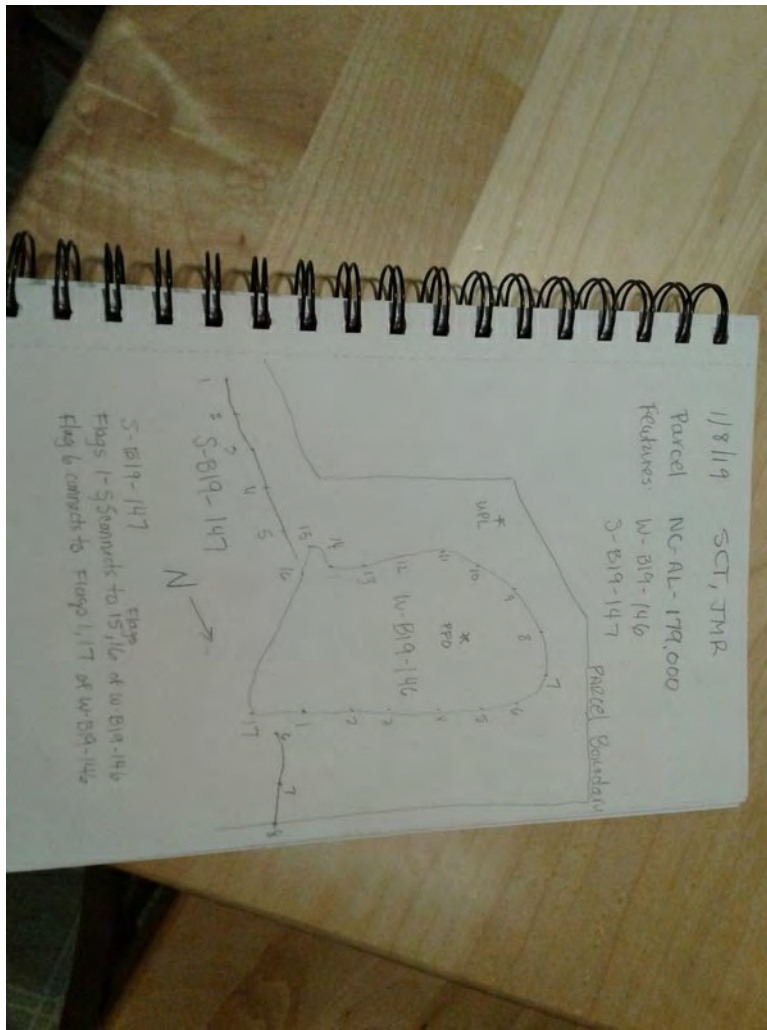 1/8/19 SCT, JMR
Parcel NC-AL-179.000
Features: W-B19-146
S-B19-147
PARCEL Boundary
UPL
PPO
W-B19-146
1
2
3
4
5
6
7
8
9
10
11
12
13
14
15
16
17
S-B19-147
1
2
3
4
5
6
7
8
N
S-B19-147
Flags 1-5 connects to Flags 15,16 of W-B19-146
Flag 6 connects to Flags 1,17 of W-B19-146